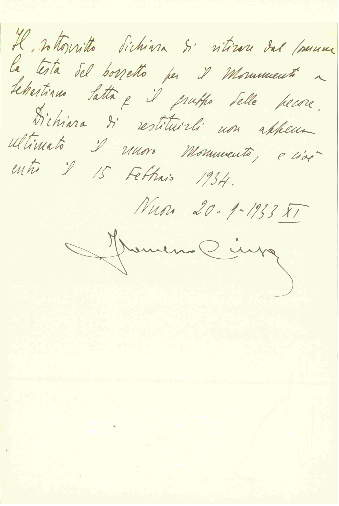 Il sottoscritto dichiara di ritirare dal Comune
la testa del bozzetto per il Monumento a
Sebastiano Satta e il gruppo delle pecore.
Dichiara di restituirli non appena
ultimato il nuovo Monumento, e cioè
entro il 15 Febbraio 1934.
Nuoro 20-9-1933 XI
Francesco Ciusa